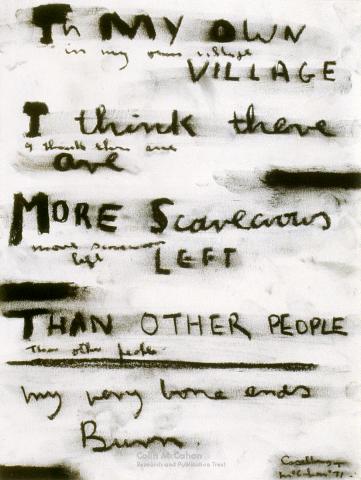 In MY OWN
in my own village
VILLAGE
I think there
I think there are
are
MORE Scarecrows
more scarecrows
left
LEFT
THAN OTHER PEOPLE
Than other people
my very bone ends
Burn.
Colin McCahon
Research and Publication Trust
McCahon '71